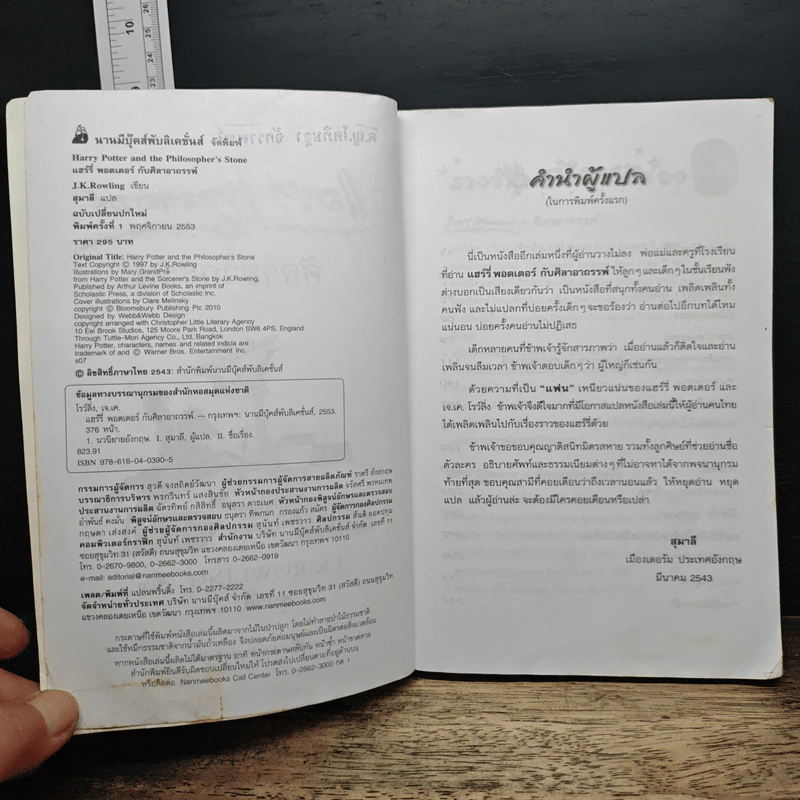 10
9
นานมีบุ๊คส์พับลิเคชั่นส์ จัดพิมพ์
Harry Potter and the Philosopher's Stone
แฮร์รี่ พอตเตอร์ กับศิลาอาถรรพ์
J.K.Rowling เขียน
สุมาลี แปล
ฉบับเปลี่ยนปกใหม่
พิมพ์ครั้งที่ 1 พฤศจิกายน 2553
ราคา 295 บาท
Original Title: Harry Potter and the Philosopher's Stone
Text Copyright © 1997 by J.K.Rowling
Illustrations by Mary GrandPré
from Harry Potter and the Sorcerer's Stone by J.K.Rowling.
Published by Arthur Levine Books, an imprint of
Scholastic Press, a division of Scholastic Inc.
Cover illustrations by Clare Melinsky
copyright © Bloomsbury Publishing Plc 2010
Designed by Webb&Webb Design
copyright arranged with Christopher Little Literary Agency
10 Eel Brook Studios, 125 Moore Park Road, London SW6 4PS, England
Through Tuttle-Mori Agency Co., Ltd, Bangkok
Harry Potter, characters, names and related indicia are
trademark of and © Warner Bros. Entertainment Inc.
s07
© ลิขสิทธิ์ภาษาไทย 2543: สำนักพิมพ์นานมีบุ๊คส์พับลิเคชั่นส์
ข้อมูลทางบรรณานุกรมของสำนักหอสมุดแห่งชาติ
โรว์ลิ่ง, เจ.เค.
แฮร์รี่ พอตเตอร์ กับศิลาอาถรรพ์. — กรุงเทพฯ: นานมีบุ๊คส์พับลิเคชั่นส์, 2553.
376 หน้า.
1. นวนิยายอังกฤษ. I. สุมาลี, ผู้แปล. II. ชื่อเรื่อง.
823.91
ISBN 978-616-04-0390-5
กรรมการผู้จัดการ สุวดี จงสถิตย์วัฒนา ผู้ช่วยกรรมการผู้จัดการสายผลิตภัณฑ์ ราตรี
บรรณาธิการบริหาร พรกวินทร์ แสงสินชัย หัวหน้ากองประสานงานการผลิต จรัสศรี พรหมเทพ
ประสานงานการผลิต หัวหน้ากองพิสูจน์อักษรและตรวจสอบ
พิสูจน์อักษรและตรวจสอบ ผู้จัดการกองศิลปกรรม
ผู้ช่วยผู้จัดการกองศิลปกรรม สุนันท์ เพชรวาว ศิลปกรรม
คอมพิวเตอร์กราฟิก สุนันท์ เพชรวาว สำนักงาน บริษัท นานมีบุ๊คส์ จำกัด เลขที่ 11
ซอยสุขุมวิท 31 (สวัสดี) ถนนสุขุมวิท แขวงคลองเตยเหนือ เขตวัฒนา กรุงเทพฯ 10110
โทร. 0-2670-9800, 0-2662-3000 โทรสาร 0-2662-0919
e-mail: editorial@nanmeebooks.com
เพลต/พิมพ์ที่ แปลนพริ้นติ้ง โทร. 0-2277-2222
จัดจำหน่ายทั่วประเทศ บริษัท นานมีบุ๊คส์ จำกัด เลขที่ 11 ซอยสุขุมวิท 31 (สวัสดี) ถนนสุขุมวิท
แขวงคลองเตยเหนือ เขตวัฒนา กรุงเทพฯ 10110 www.nanmeebooks.com
กระดาษที่ใช้พิมพ์หนังสือเล่มนี้ผลิตมาจากไม้ในป่าปลูก โดยไม่ทำลายป่าไม้ธรรมชาติ
และใช้หมึกธรรมชาติจากน้ำมันถั่วเหลือง จึงปลอดภัยต่อมนุษย์และเป็นมิตรต่อสิ่งแวดล้อม
หากหนังสือเล่มนี้ผลิตไม่ได้มาตรฐาน อาทิ หน้ากระดาษสลับกัน หน้าซ้ำ หน้าขาดหาย
สำนักพิมพ์ยินดีรับผิดชอบเปลี่ยนใหม่ให้ โปรดส่งไปเปลี่ยนตามที่อยู่ด้านบน
หรือติดต่อ Nanmeebooks Call Center โทร. 0-2662-3000 กด 1
คำนำผู้แปล
(ในการพิมพ์ครั้งแรก)
นี่เป็นหนังสืออีกเล่มหนึ่งที่ผู้อ่านวางไม่ลง พ่อแม่และครูที่โรงเรียน
ที่อ่าน แฮร์รี่ พอตเตอร์ กับศิลาอาถรรพ์ ให้ลูกๆ และเด็กๆ ในชั้นเรียนฟัง
ต่างบอกเป็นเสียงเดียวกันว่า เป็นหนังสือที่สนุกทั้งคนอ่าน เพลิดเพลินทั้ง
คนฟัง และไม่แปลกที่บ่อยครั้งเด็กๆ จะขอร้องว่า อ่านต่อไปอีกบทได้ไหม
แน่นอน บ่อยครั้งคนอ่านไม่ปฏิเสธ
เด็กหลายคนที่ข้าพเจ้ารู้จักสารภาพว่า เมื่ออ่านแล้วก็ติดใจและอ่าน
เพลินจนลืมเวลา ข้าพเจ้าตอบเด็กๆ ว่า ผู้ใหญ่ก็เช่นกัน
ด้วยความที่เป็น “แฟน” เหนียวแน่นของแฮร์รี่ พอตเตอร์ และ
เจ.เค. โรว์ลิ่ง ข้าพเจ้าจึงดีใจมากที่มีโอกาสแปลหนังสือเล่มนี้ให้ผู้อ่านคนไทย
ได้เพลิดเพลินไปกับเรื่องราวของแฮร์รี่ด้วย
ข้าพเจ้าขอขอบคุณญาติสนิทมิตรสหาย รวมทั้งลูกศิษย์ที่ช่วยอ่านชื่อ
ตัวละคร อธิบายศัพท์และธรรมเนียมต่างๆ ที่ไม่อาจหาได้จากพจนานุกรม
ท้ายที่สุด ขอบคุณสามีที่คอยเตือนว่าถึงเวลานอนแล้ว ให้หยุดอ่าน หยุด
แปล แล้วผู้อ่านล่ะ จะต้องมีใครคอยเตือนหรือเปล่า
สุมาลี
เมืองเดอรัม ประเทศอังกฤษ
มีนาคม 2543